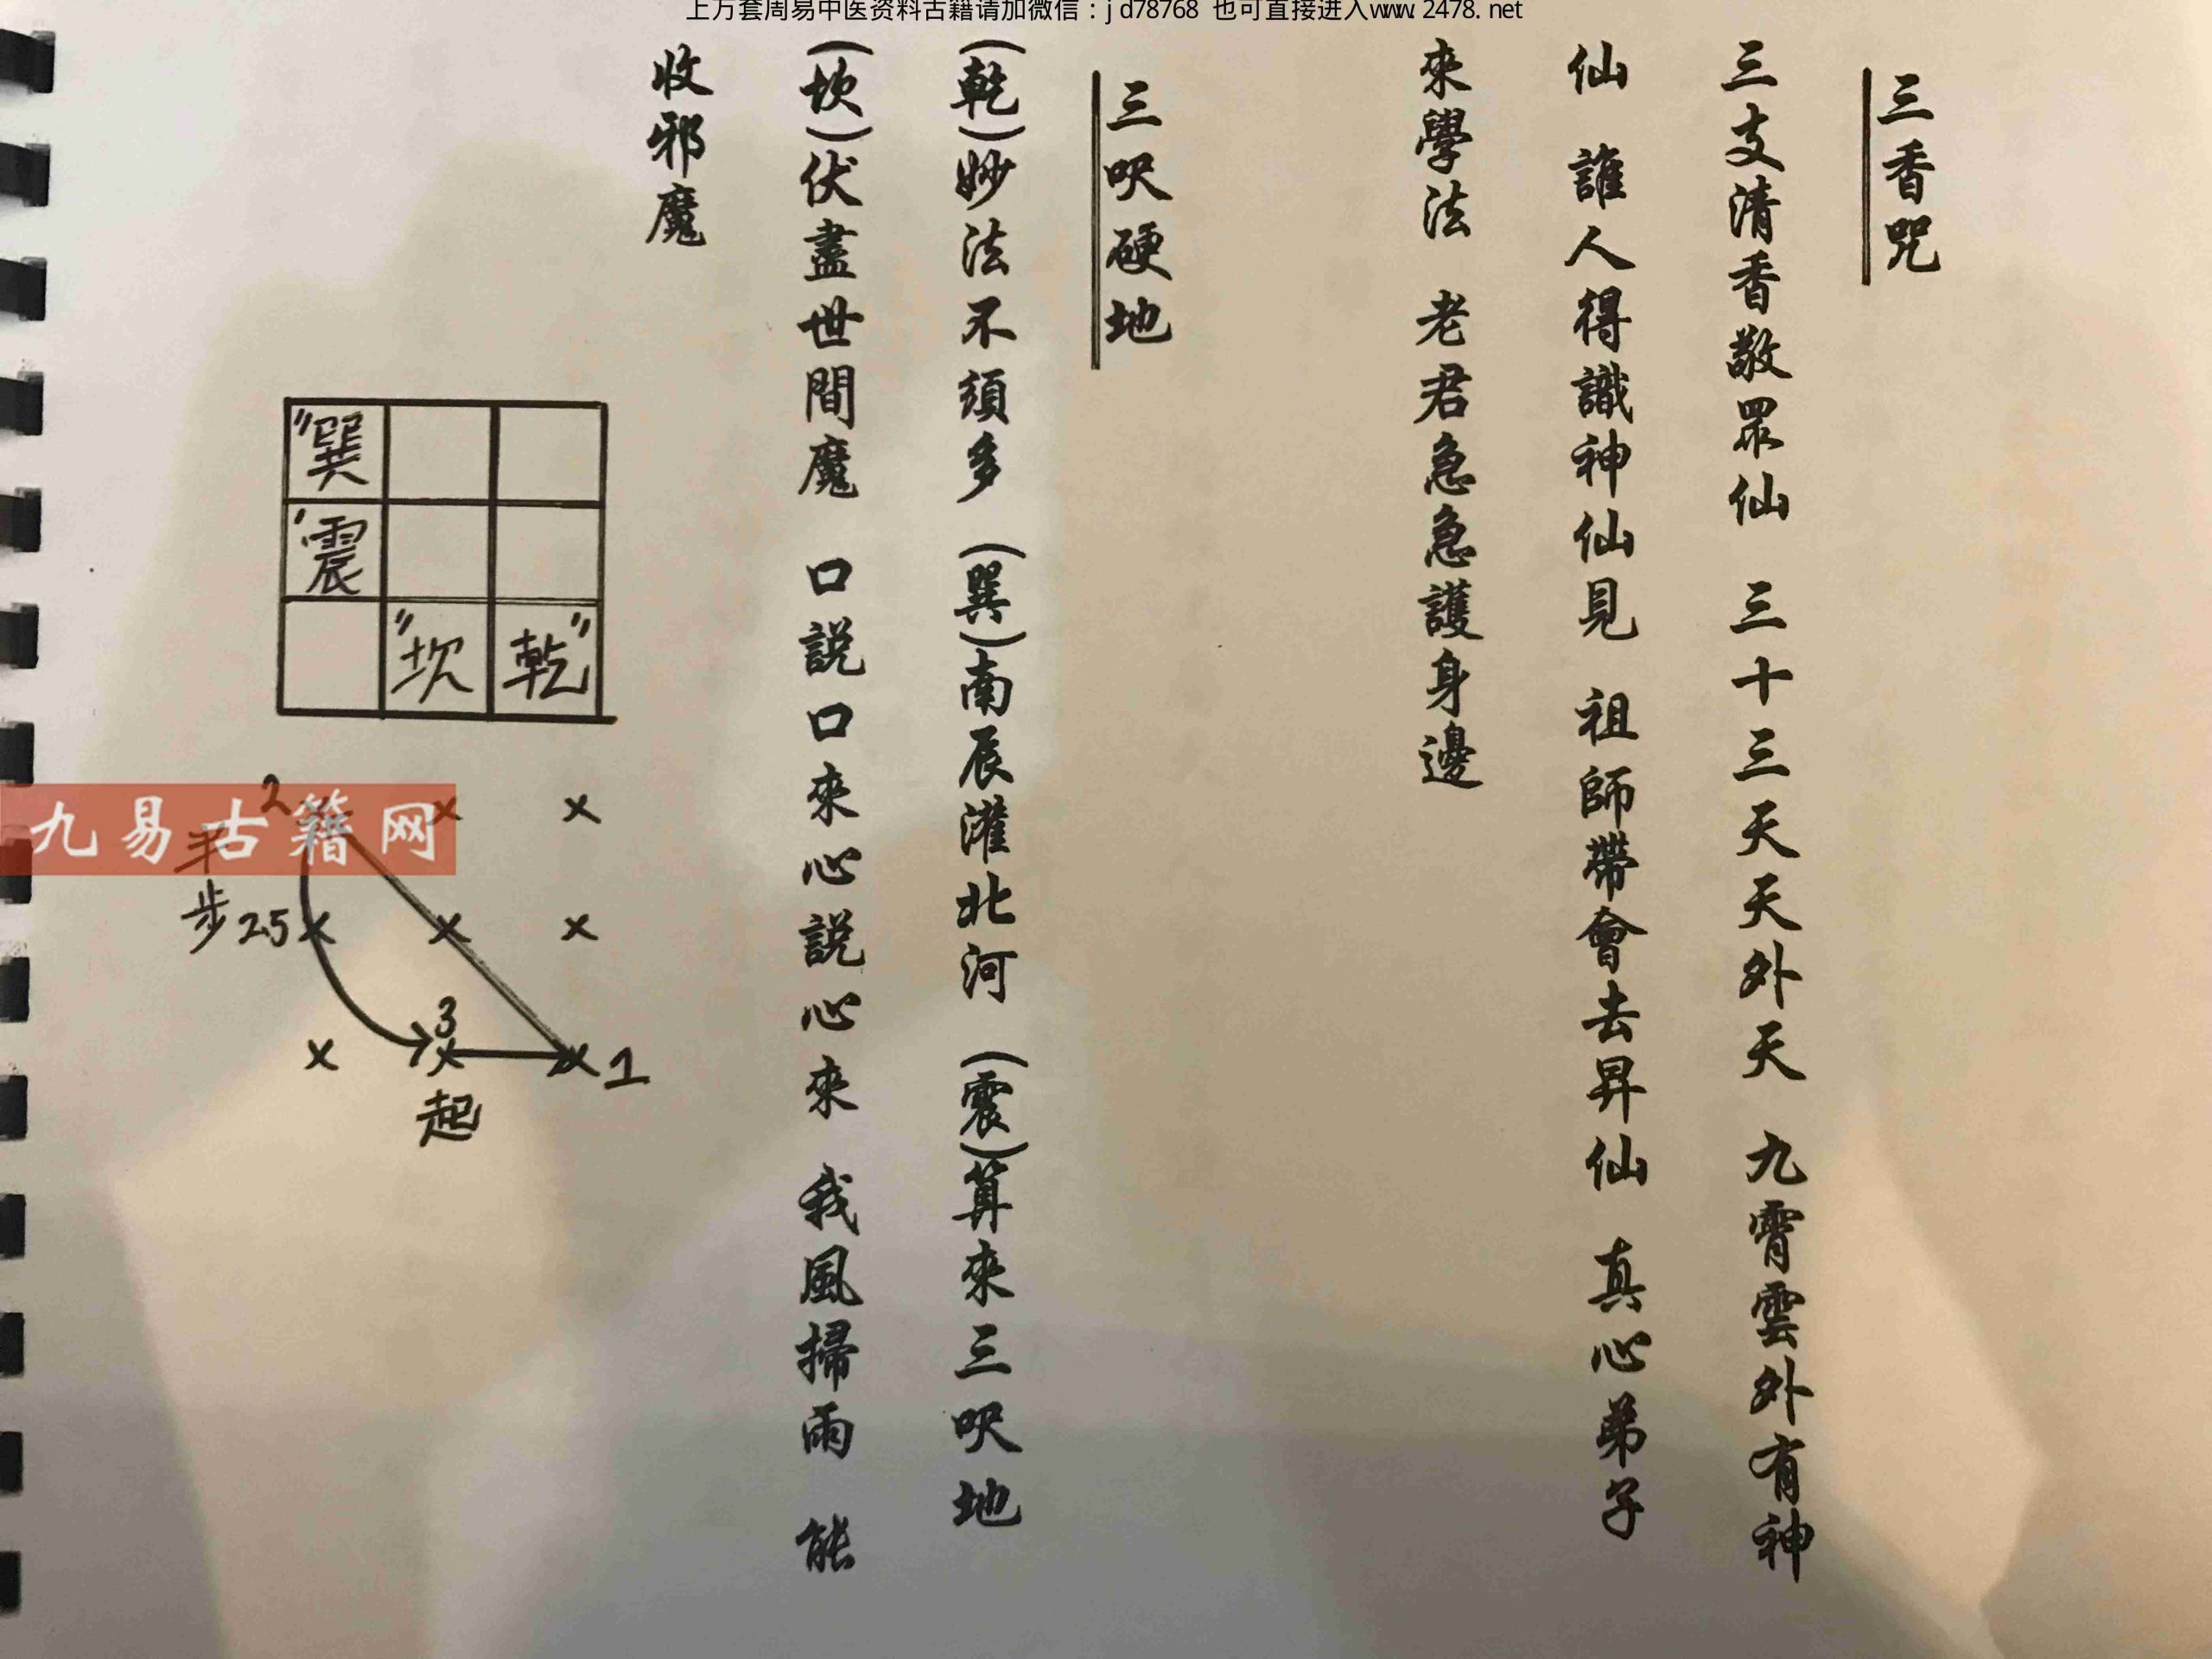 上万套周易中医资料古籍请加微信：jd78768 也可直接进入www.2478.net
三香咒
三支清香敬眾仙 三十三天天外天 九霄雲外有神
仙 誰人得識神仙見 祖師帶會去昇仙 真心弟子
來學法 老君急急護身邊
三呎硬地
(乾)妙法不須多 (巽)南辰灌北河 (震)算來三呎地
(坎)伏盡世間魔 口説口來心説心來 我風掃雨 能
收邪魔
"巽
'震
"坎 乾"
2 × ×
半步 2.5 × × ×
× 3 × × 1
起
九易古籍网